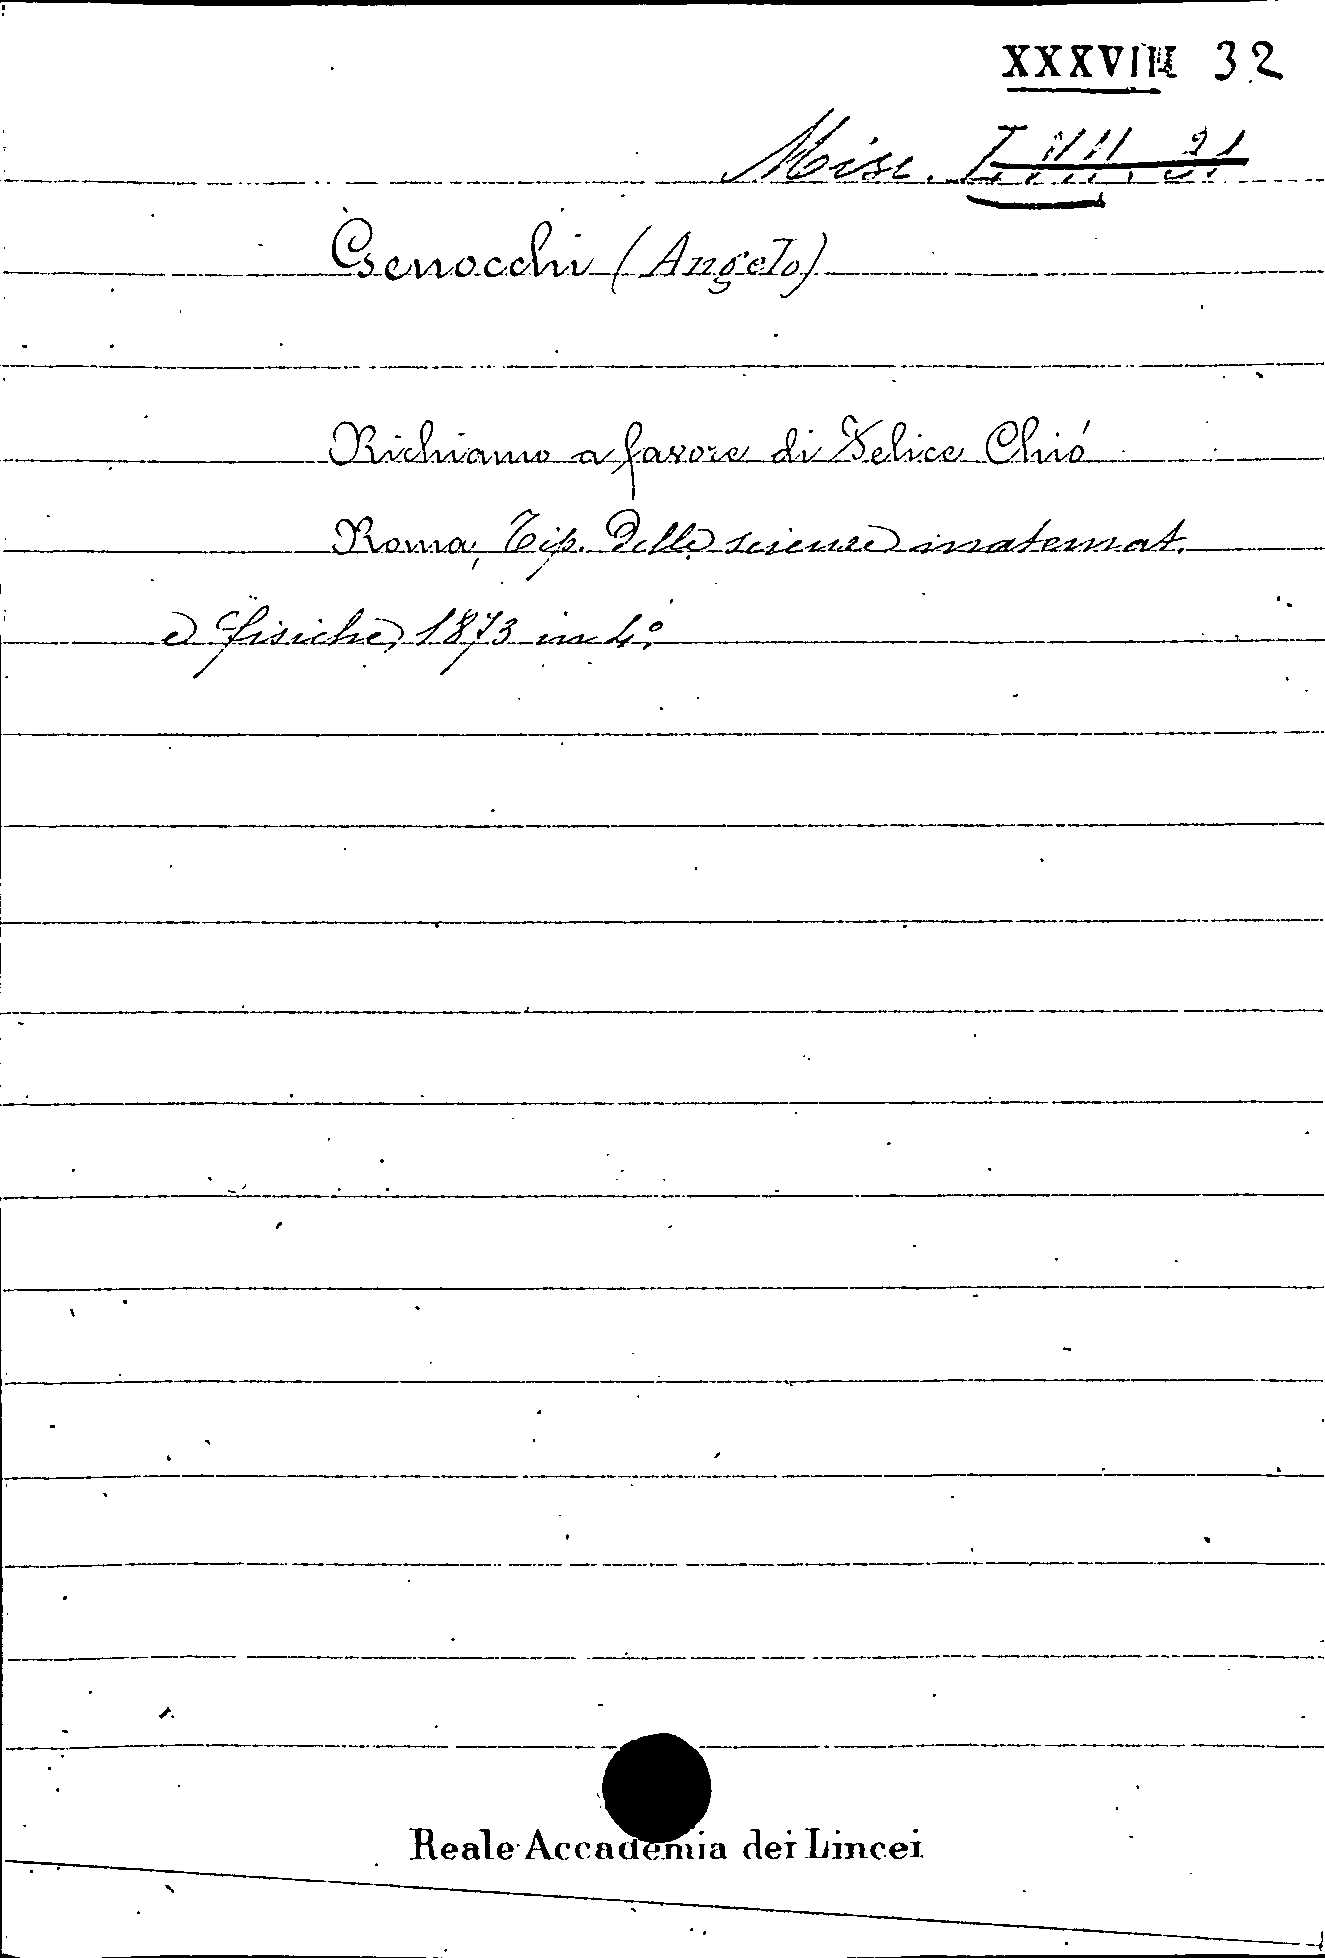 XXXVIII 32
Misc.
Genocchi (Angelo)
Richiamo a favore di Felice Chió
Roma, Tip. delle scienze matemat.
e fisiche, 1873 in 4.º
Reale Accademia dei Lincei